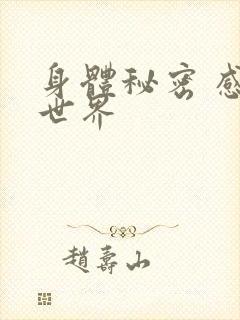 身體秘密 感
世界
趙壽山